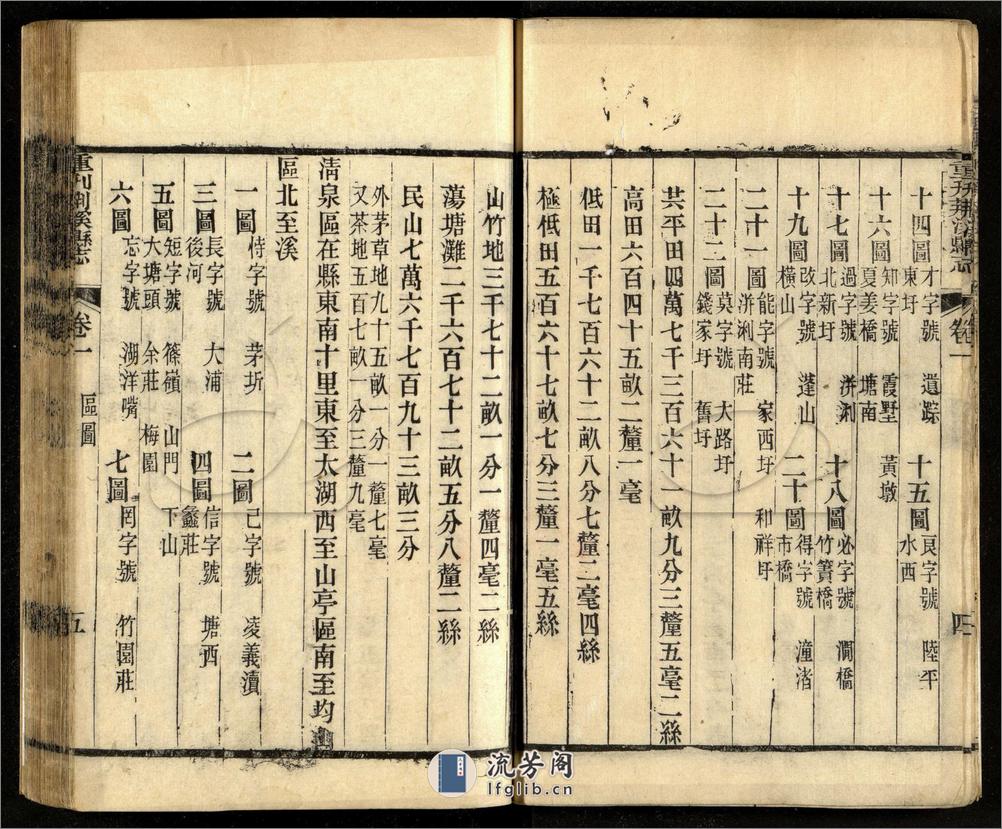 重刊荊溪縣志 卷一 四
十四圖 才字號 遺踪 東圩 十五圖 良字號 陸平 水西
十六圖 知字號 霞墅 黃墩 夏姜橋 塘南
十七圖 過字號 洴浰 北新圩 十八圖 必字號 澗橋 竹簀橋
十九圖 改字號 蓬山 橫山 二十圖 得字號 潼渚 市橋
二十一圖 能字號 家西圩 和祥圩 洴浰南莊
二十二圖 莫字號 大路圩 錢家圩 舊圩
共平田四萬七千三百六十一畝九分三釐五毫二絲
高田六百四十五畝二釐一毫
低田一千七百六十二畝八分七釐二毫四絲
極低田五百六十七畝七分三釐一毫五絲
山竹地三千七十二畝一分一釐四毫二絲
蕩塘灘二千六百七十二畝五分八釐二絲
民山七萬六千七百九十三畝三分
外茅草地九十五畝一分一釐七毫
又茶地五百七畝一分三釐九毫
清泉區在縣東南十里東至太湖西至山亭區南至均
區北至溪
一圖 侍字號 茅圻 二圖 己字號 凌義瀆
三圖 長字號 大浦 後河 四圖 信字號 塘西 蠡莊
五圖 短字號 篠嶺 山門 下山 大塘頭 余莊 梅園
六圖 忘字號 湖洋嘴 七圖 罔字號 竹園莊
重刊荊溪縣志 卷一 區圖 五
流芳阁
lfglib.cn